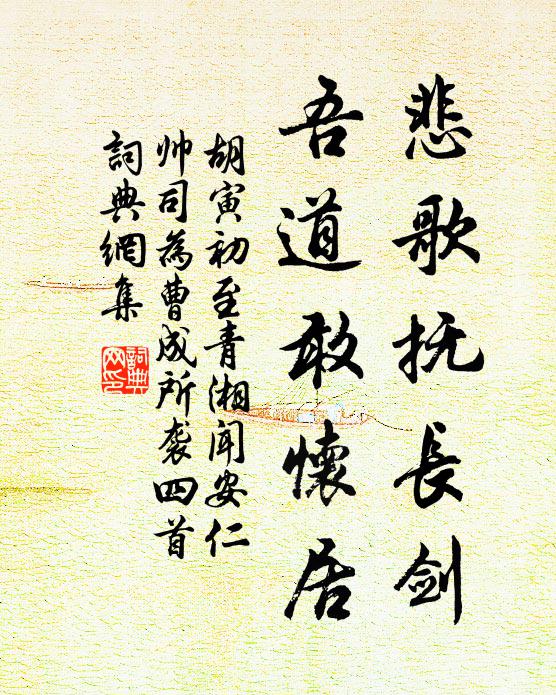 悲歌抚長剑
吾道敢懷居
胡寅初至青湘闻安仁
帅司為曹成所袭四首
詞典網集
詞典网印